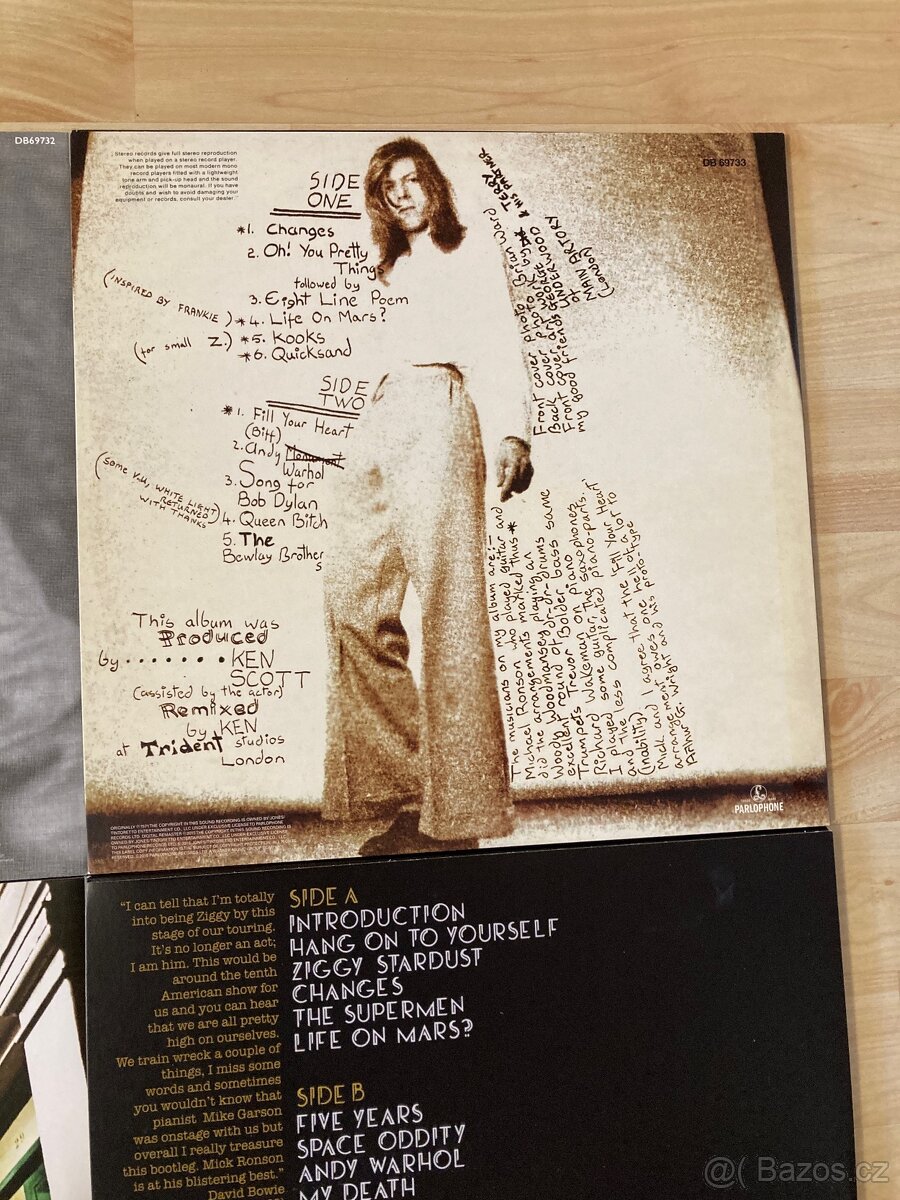 DB69732
Stereo records give full stereo reproduction
when played on a stereo record player.
They can be played on most modern mono
record players fitted with a lightweight
tone arm and pick-up head and the sound
reproduction will be monaural. If you have
doubts and wish to avoid damaging your
equipment or records, consult your dealer.
DB 69733
SIDE
ONE
*1. Changes
2. Oh! You Pretty
Things
followed by
3. Eight Line Poem
(INSPIRED BY FRANKIE)
*4. Life On Mars?
(for small Z.)
*5. Kooks
*6. Quicksand
SIDE
TWO
*1. Fill Your Heart
(Biff)
2. Andy
Warhol
3. Song for
Bob Dylan
(SOME V.U. WHITE LIGHT
RETURNED
WITH THANKS)
4. Queen Bitch
5. The
Bewlay Brother
s
This album was
Produced
by........KEN
SCOTT
(assisted by the actor)
Remixed
by KEN
at Trident studios
London
Front cover photo Brian Ward
Back cover photo by
Front cover art work by TERRY
& HIS PARTNER
and GEORGE UNDERWOOD
my good friends of MAIN ARTORY
(London)
The musicians on my album are:-
Michael Ronson who played guitar and
did the arrangements marked thus *
Woody Woodmansey playing an
excellent round of dr-dr-drums same
Trevor Bolder bass
Trumpets
Richard Wakeman on piano saxophones
I played some guitar, the
and the less complicated piano-parts.
(inability) I agree that the 'Fill Your Heart'
Mick and mine owes one hell of a lot to
arrangement
Arthur G. Wright and his prototype
PARLOPHONE
"I can tell that I'm totally
into being Ziggy by this
stage of our touring.
It's no longer an act;
I am him. This would be
around the tenth
American show for
us and you can hear
that we are all pretty
high on ourselves.
We train wreck a couple of
things, I miss some
words and sometimes
you wouldn't know that
pianist Mike Garson
was onstage with us but
overall I really treasure
this bootleg. Mick Ronson
is at his blistering best."
David Bowie
SIDE A
INTRODUCTION
HANG ON TO YOURSELF
ZIGGY STARDUST
CHANGES
THE SUPERMEN
LIFE ON MARS?
SIDE B
FIVE YEARS
SPACE ODDITY
ANDY WARHOL
MY DEATH
@( Bazos.cz